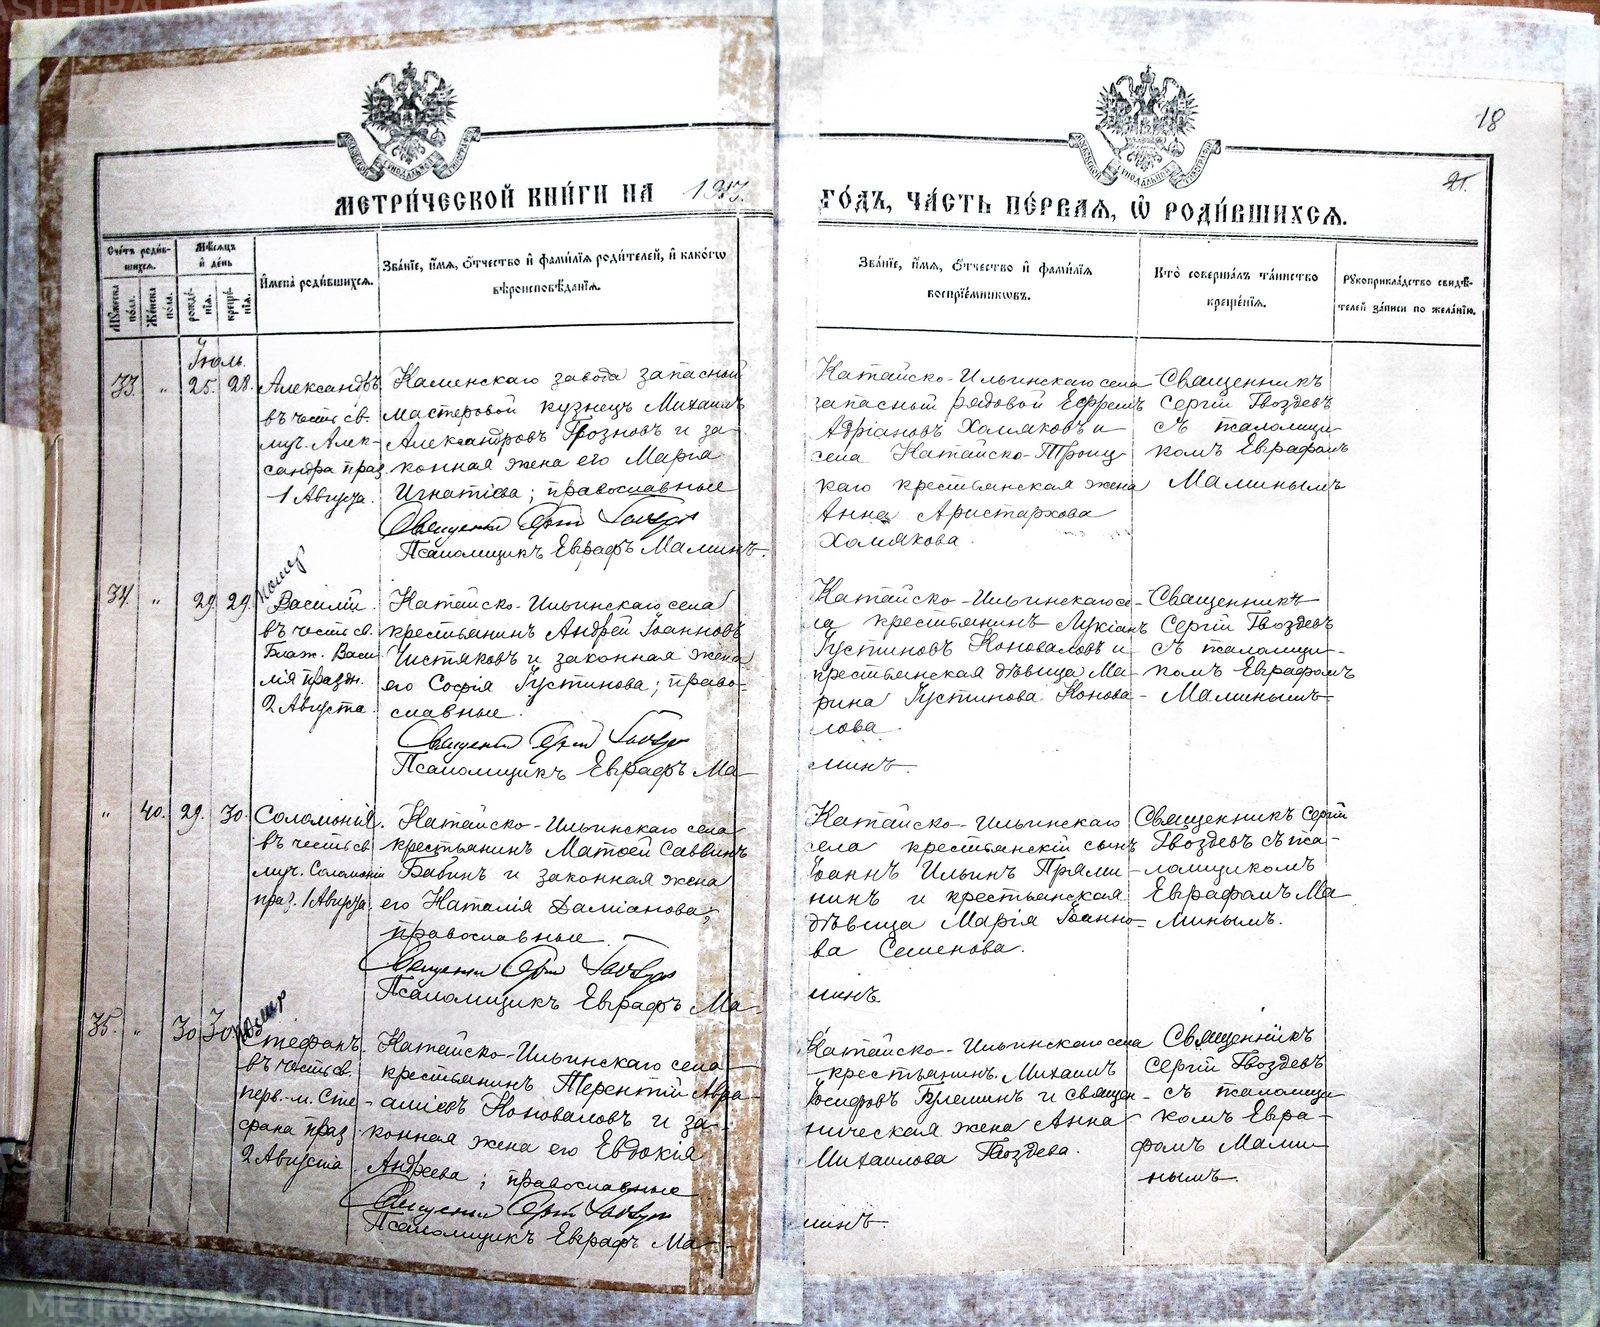 18
21.
МЕТРИ́ЧЕСКОЙ КНИ́ГИ НА 1917. ГО́ДЪ, ЧА́СТЬ ПЕ́РВАЯ, Ѽ РОДИ́ВШИХСЯ.
Сче́тъ роди́в-
шихся.
Мꙋ́жеска по́ла.
Же́нска по́ла.
Мѣ́сяцъ
и҆ де́нь
рожде́-
нїя.
креще́-
нїя.
И҆мена̀ роди́вшихся.
Зва́нїе, и҆́мя, ѻ҆́тчество и҆ фами́лїя роди́телей, и҆ како́гѡ
вѣроисповѣ́данїя.
Зва́нїе, и҆́мя, ѻ҆́тчество и҆ фами́лїя
воспрїе́мниковъ.
Кто̀ соверша́лъ та́инство
креще́нїя.
Рꙋкоприкла́дство свидѣ́-
телей за́писи по жела́нїю.
Іюль.
33. " 25. 28.
Александръ
въ честь св.
муч. Алек-
сандра праз.
1 Августа.
Каменскаго завода запасный
мастеровой кузнецъ Михаилъ
Александровъ Грозновъ и за-
конная жена его Марія
Игнатіева; православные
Священникъ Сергій Гвоздевъ
Псаломщикъ Евграфъ Малинъ.
Катайско-Ильинскаго села
запасный рядовой Ефремъ
Адріановъ Холяковъ и
села Катайско-Троиц-
каго крестьянская жена
Анна Аристархова
Холякова.
Священникъ
Сергій Гвоздевъ
съ псаломщи-
комъ Евграфомъ
Малинымъ
34. " 29. 29.
Василій
въ честь св.
Блаж. Васи-
лія праздн.
2 Августа.
Катайско-Ильинскаго села
крестьянинъ Андрей Іоанновъ
Чистяковъ и законная жена
его Софія Іустинова; право-
славные.
Священникъ Сергій Гвоздевъ
Псаломщикъ Евграфъ Ма-
Катайско-Ильинскаго се-
ла крестьянинъ Лукіанъ
Іустиновъ Коноваловъ и
крестьянская дѣвица Ма-
рина Іустинова Конова-
лова.
линъ.
Священникъ
Сергій Гвоздевъ
съ псаломщи-
комъ Евграфомъ
Малинымъ
" 40. 29. 30.
Соломонія.
въ честь св.
муч. Соломоніи
праз. 1 Августа.
Катайско-Ильинскаго села
крестьянинъ Матѳей Саввинъ
Бабинъ и законная жена
его Наталія Даміанова;
православные.
Священникъ Сергій Гвоздевъ
Псаломщикъ Евграфъ Ма-
Катайско-Ильинскаго
села крестьянскій сынъ
Іоаннъ Ильинъ Прями-
нинъ и крестьянская
дѣвица Марія Іоанно-
ва Семенова.
линъ.
Священникъ Сергій
Гвоздевъ съ пса-
ломщикомъ
Евграфомъ Ма-
линымъ.
35. " 30. 30.
Стефанъ
въ честь св.
перв.-м. Сте-
фана праз.
2 Августа.
Катайско-Ильинскаго села
крестьянинъ Терентій Авра-
аміевъ Коноваловъ и за-
конная жена его Евдокія
Андреева; православные
Священникъ Сергій Гвоздевъ
Псаломщикъ Евграфъ Ма-
Катайско-Ильинскаго села
крестьянинъ Михаилъ
Іосифовъ и священ-
ническая жена Анна
Михаилова Гвоздева.
линъ.
Священникъ
Сергій Гвоздевъ
съ псаломщи-
комъ Евгра-
фомъ Мали-
нымъ.
METRIKI.GASO-URAL.RU